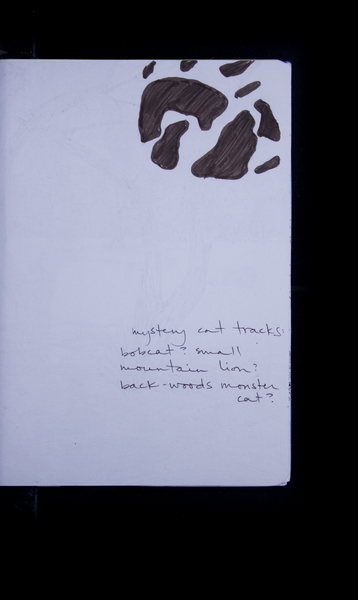 mystery cat tracks:
bobcat? small
mountain lion?
back-woods monster
cat?